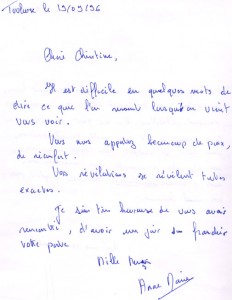 Toulouse le 19/09/96
Chère Christine,
Il est difficile en quelques mots de
dire ce que l'on ressent lorsqu'on vient
vous voir.
Vous nous apportez beaucoup de paix,
de réconfort.
Vos révélations se révèlent toutes
exactes.
Je suis très heureuse de vous avoir
rencontré, d'avoir un jour franchir
votre porte
Mille merci
Anne Marie